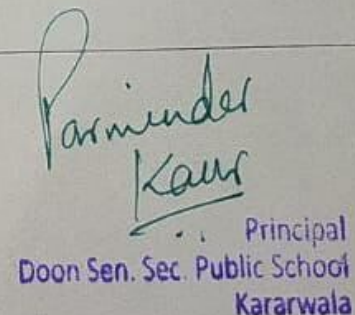 Parminder
Kaur
Principal
Doon Sen. Sec. Public School
Kararwala